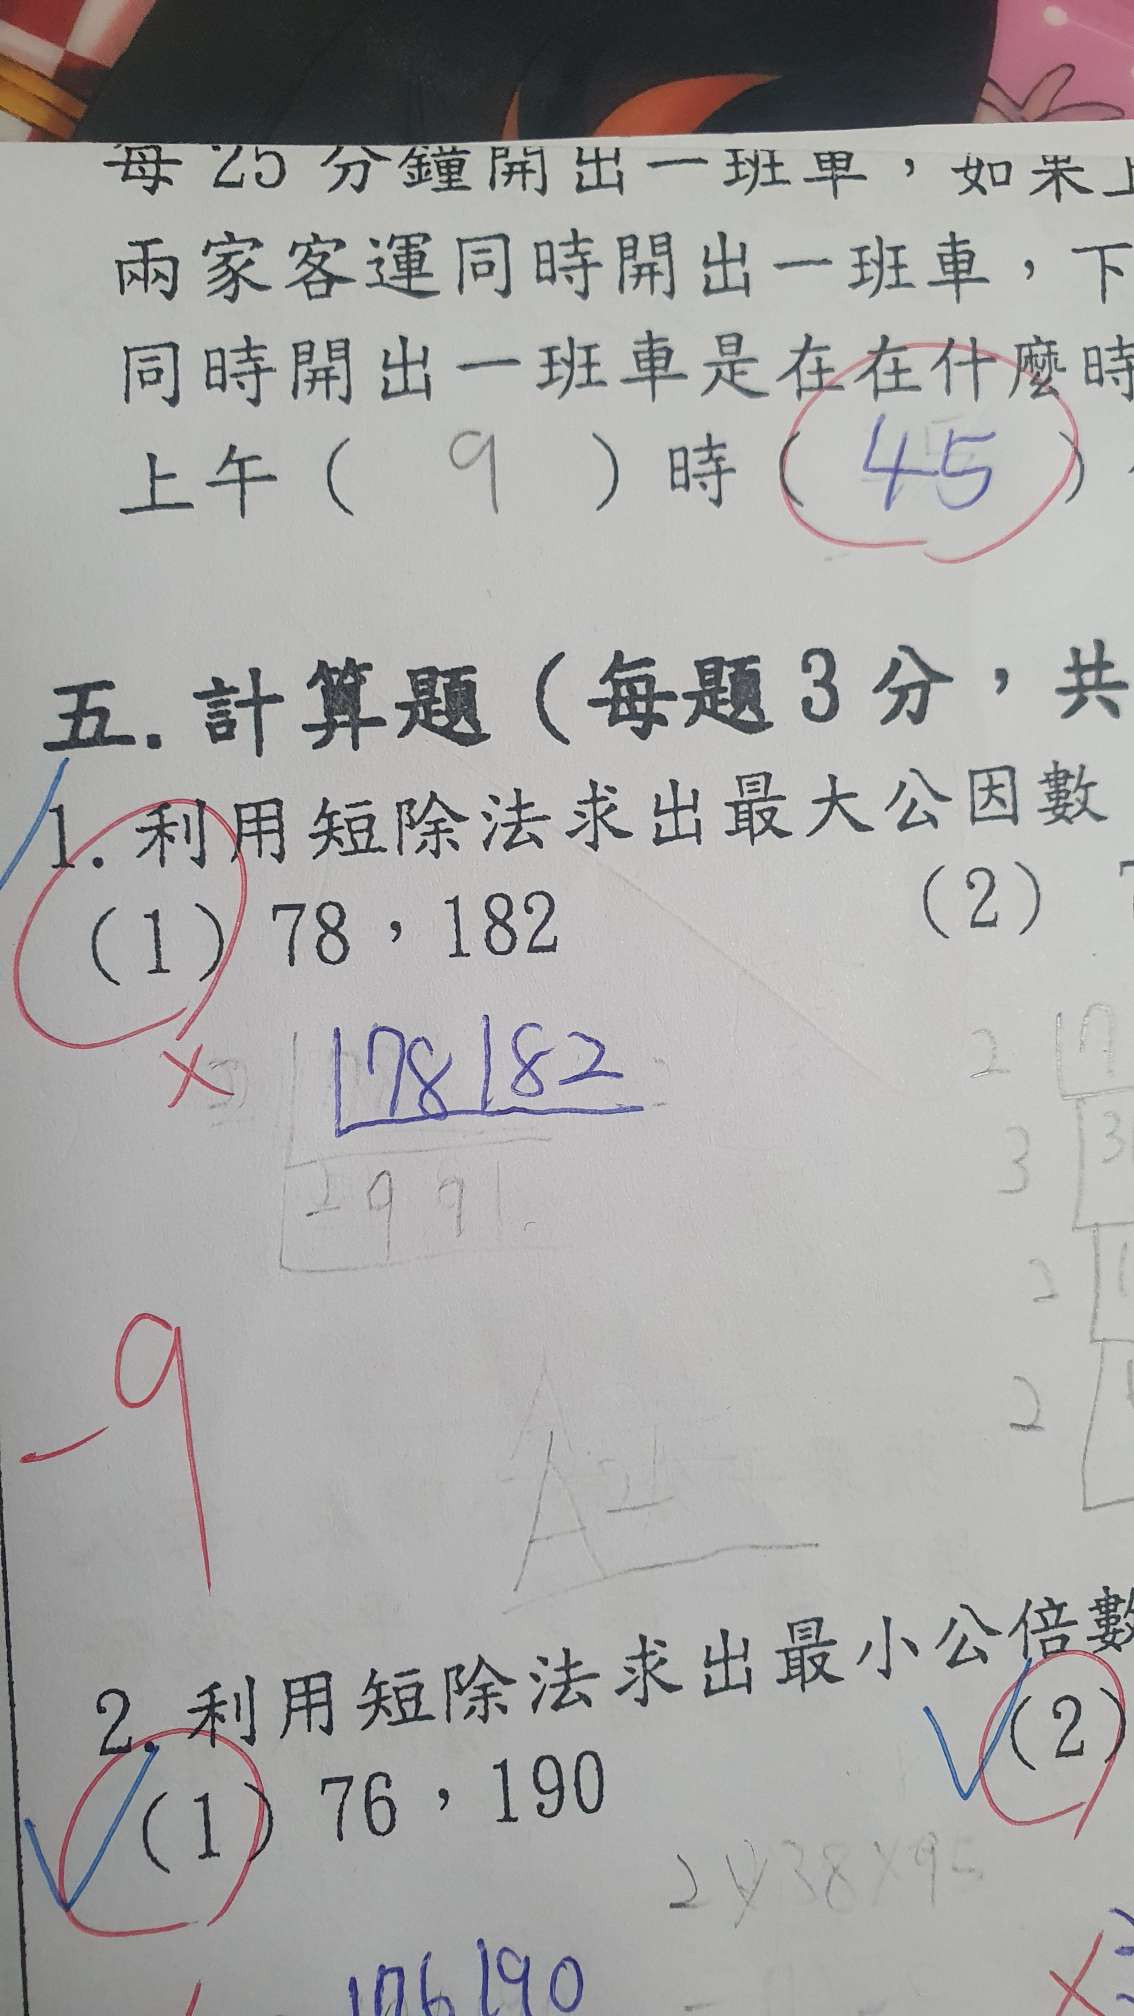 每25分鐘開出一班車，如果上
兩家客運同時開出一班車，下
同時開出一班車是在在什麼時
上午( 9 )時( 45 )
五.計算題(每題3分，共
1.利用短除法求出最大公因數
(1) 78，182 (2) 7
× 78 182
2 7
3 3
2991.
2 1
2
-9
A=
2.利用短除法求出最小公倍數
(1) 76，190 (2)
2×38×95
76 190